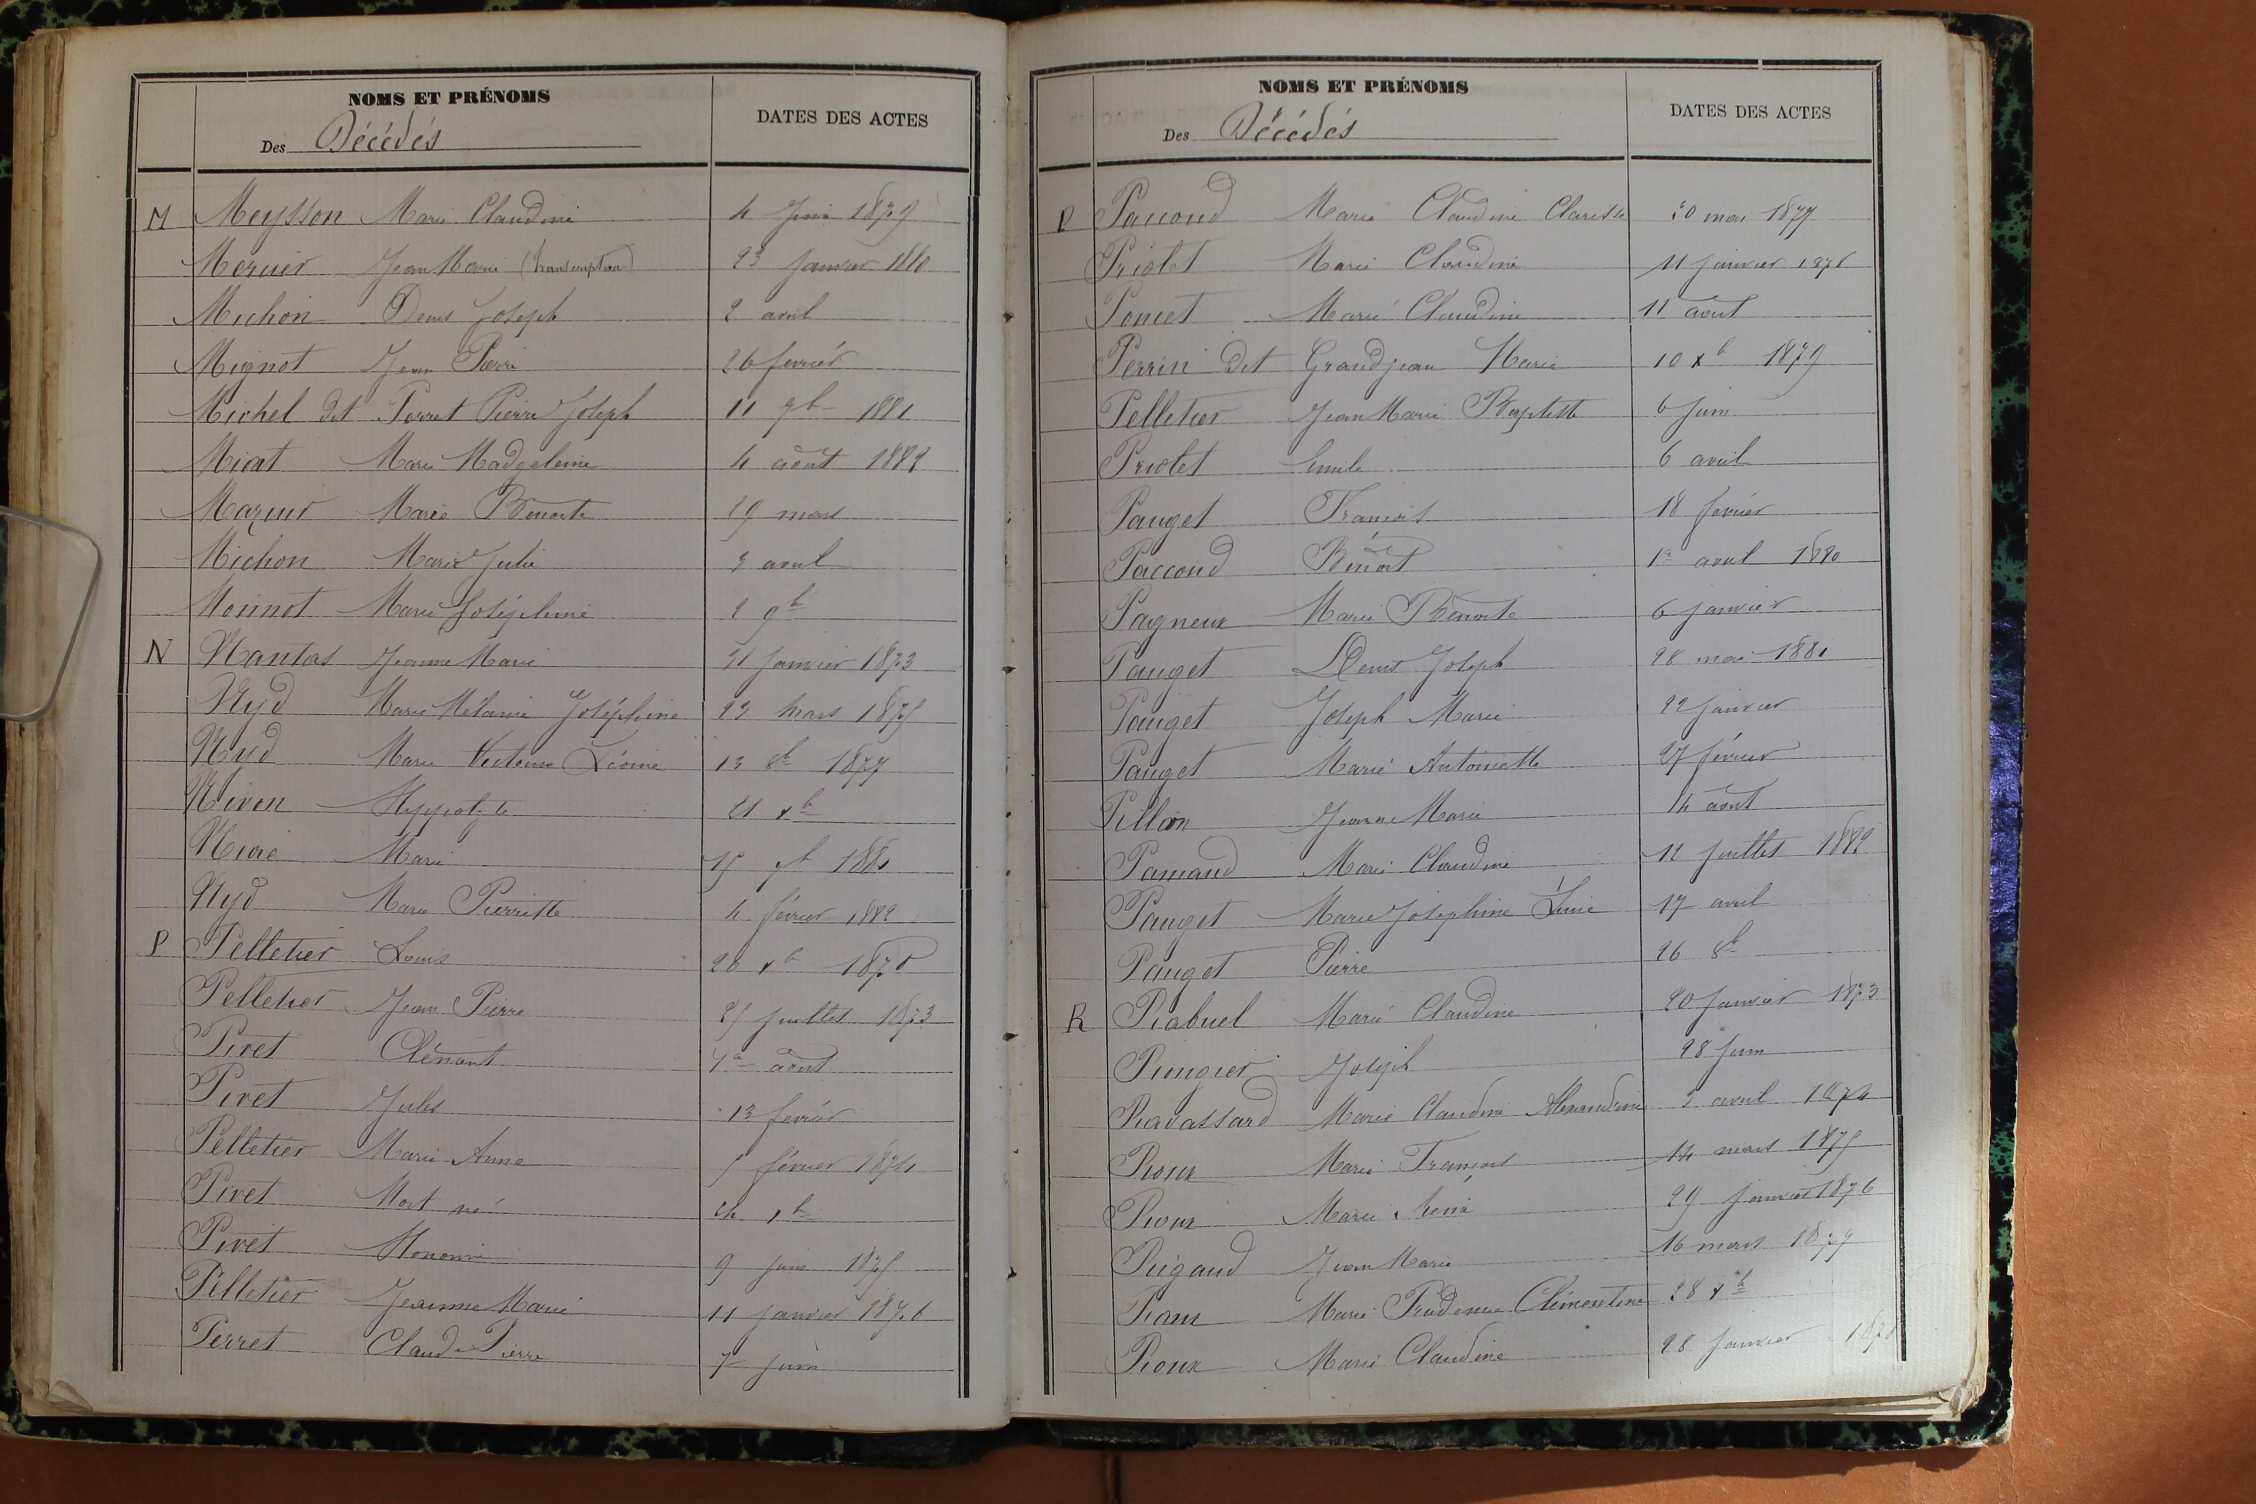 NOMS ET PRÉNOMS
DATES DES ACTES
Des Décédés
M Meysson Marie Claudine 4 Juin 1879
Mercier Jean Marie (transcription) 23 Janvier 1880
Michon Denis Joseph 2 avril
Mignot Jean Pierre 26 fevrier
Michel dit Perret Pierre Joseph 11 9b 1881
Miat Marie Madgeleine 4 août 1882
Mazuir Marie Benoite 29 mars
Michon Marie Julie 3 avril
Monnot Marie Joséphine 2 9b
N Nantas Jeanne Marie 21 Janvier 1873
Nyd Marie Mélanie Joséphine 23 Mars 1875
Nyd Marie Victoine Léonie 13 8b 1877
Niron Hyppolyte 21 xb
Marie 15 9b 1881
Nyd Marie Pierrette 4 février 1882
P Pelletier Louis 20 xb 1870
Pelletier Jean Pierre 25 Juillet 1873
Piret Clément août
Piret Jules 13 fevrier
Pelletier Marie Anne 5 février 1874
Piret Mort né 24
Piret Honorine 9 Juin 1875
Pelletier Jeanne Marie 11 Janvier 1876
Perret Claude Pierre 7 Juin
NOMS ET PRÉNOMS
DATES DES ACTES
Des Décédés
P Paccoud Marie Claudine Clarisse 30 mai 1877
Priolet Marie Claudine 11 Janvier 1878
Poncet Marie Claudine 11 août
Perrin dit Grandjean Marie 10 xb 1879
Pelletier Jean Marie Baptiste 6 Juin
Priolet Emile 6 avril
Pauget François 18 février
Paccoud Benoit 1er avril 1880
Pagneux Marie Benoite 6 Janvier
Pauget Denis Joseph 28 mai 1881
Pauget Joseph Marie 22 Janvier
Pauget Marie Antoinette 27 février
Pillon Jeanne Marie 14 août
Marie Claudine 12 Juillet 1882
Pauget Marie Joséphine 17 avril
Pauget Pierre 26 8b
R Rabuel Marie Claudine 20 Janvier 1873
Joseph 28 Juin
Ravassard Marie Claudine Alexandrine 3 avril 1874
Roux Marie François 14 mars 1875
Roux Marie 29 Janvier 1876
Rigaud Jean Marie 16 mars 1877
Roux Marie Prudence Clémentine 28 xb
Roux Marie Claudine 28 Janvier